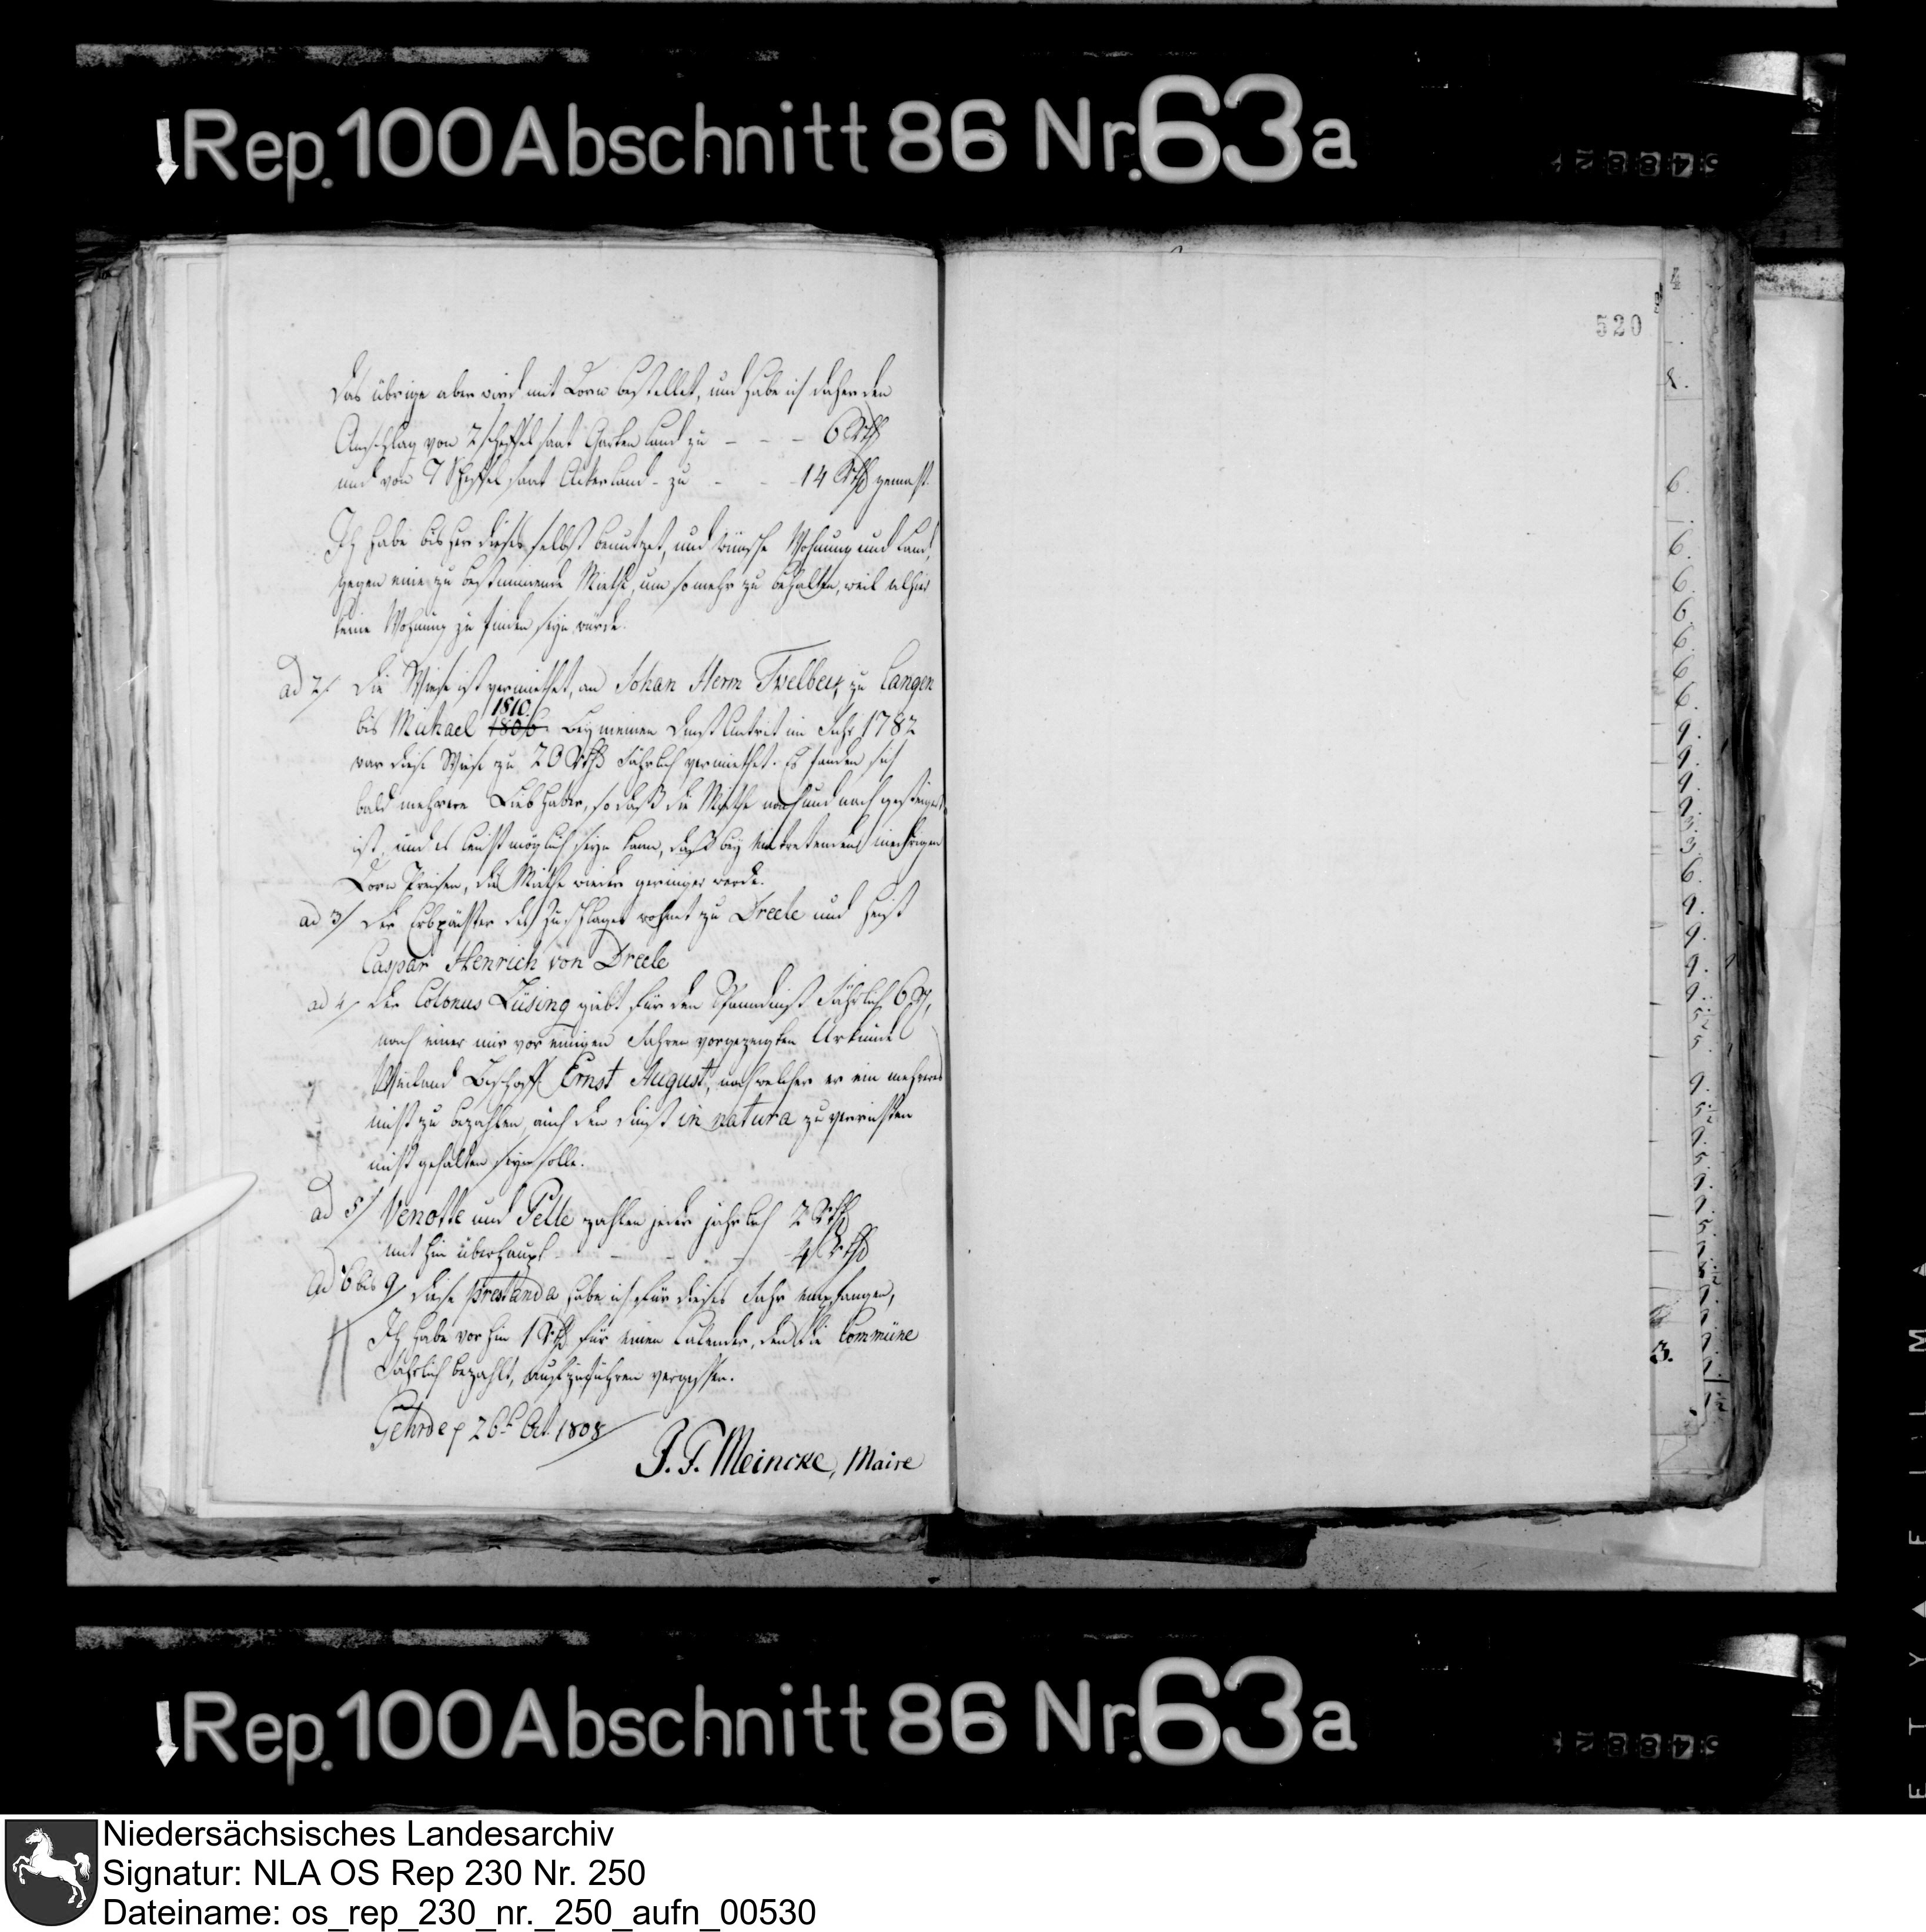 Rep. 100 Abschnitt 86 Nr. 63a
520
das übrige aber wird mit Korn bestellet, und habe ich daher den
Anschlag von 2 Scheffel saat Garten Land zu - - - 6 Rthlr
und von 7 Scheffel saat Ackerland - zu - - - 14 Rthlr gemacht.
Ich habe bisher dieses selbst benutzet, und wünsche Wohnung und Land,
gegen eine zu bestimmende Miethe, um so mehr zu behalten, weil alhier
keine Wohnung zu finden seyn würde.
ad 2/. Die Wiese ist vermiethet, an Johan Herm Twelbeck zu Langen
bis Michael 1806 1810. Bey meinen Dienst Antrit im Jahr 1782
war diese Wiese zu 20 Rthlr Jährlich vermiethet. Es fanden sich
bald mehrere Liebhaber, so daß die Miethe nach und nach gesteigert
ist, und es leicht möglich seyn kann, daß bey eintretenden niedrigen
Korn Preisen, die Miethe wieder geringer werde.
ad 3/ Der Erbpächter des Zuschlages wohnt zu Drehle und heist
Caspar Henrich von Dreele
ad 4/ Der Colonus Lüsing giebt für den Spanndienst Jährlich 6
nach einer mir vor einigen Jahren vorgezeigten Urkunde
Weiland Bischoff Ernst August, nach welcher er ein mehreres
nicht zu bezahlen, auch den Dienst in natura zu verrichten
nicht gehalten seyn solle.
ad 5/ Venotte und Pelle zahlen jeder jährlich 2 Rthlr
mit hin überhaupt - - - 4 Rthlr
ad 6 bis 9/ Diese prestanda habe ich für dieses Jahr empfangen,
Ich habe vorhin 1 Rthlr für einen Calender, den die Commüne
Jährlich bezahlt, aufzuführen vergessen.
Gehrde 26t Oct. 1808
J. F. Meincke, Maire
Rep. 100 Abschnitt 86 Nr. 63a
Niedersächsisches Landesarchiv
Signatur: NLA OS Rep 230 Nr. 250
Dateiname: os_rep_230_nr._250_aufn_00530